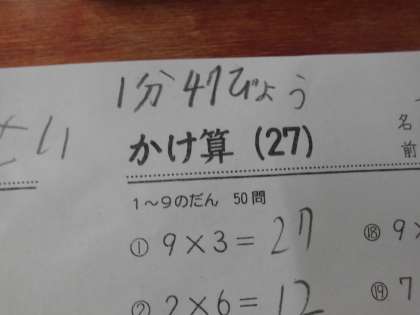 1分47びょう
さい
かけ算 (27)
名前
1〜9のだん 50問
① 9×3=27
⑱ 9×
② 2×6=12
⑲ 7